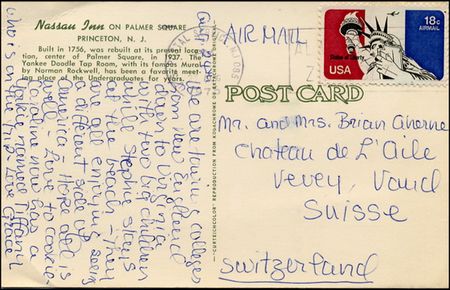 Nassau Inn ON PALMER SQUARE
PRINCETON, N. J.
Built in 1756, was rebuilt at its present location, center of Palmer Square, in 1937. The
Yankee Doodle Tap Room, with its famous Mural
by Norman Rockwell, has been a favorite meeting place of the Undergraduates for years.
We are touring colleges
from New England
down to Virginia
with two big children
while Stephie stays
at the beach - They
are all enjoying seeing
a different side of
America - Hope all is
well - Love to
Caroline now has a
Yorkie named Tiffany
who is on the trip - Love Grace
"CURTEICHCOLOR" REPRODUCTION FROM KODACHROME OR EKTACHROME
AIR MAIL
18c
AIRMAIL
Statue of Liberty
USA
POST CARD
Mr. and Mrs. Brian Aherne
Chateau de L'Aile
Vevey, Vaud
Suisse
Switzerland